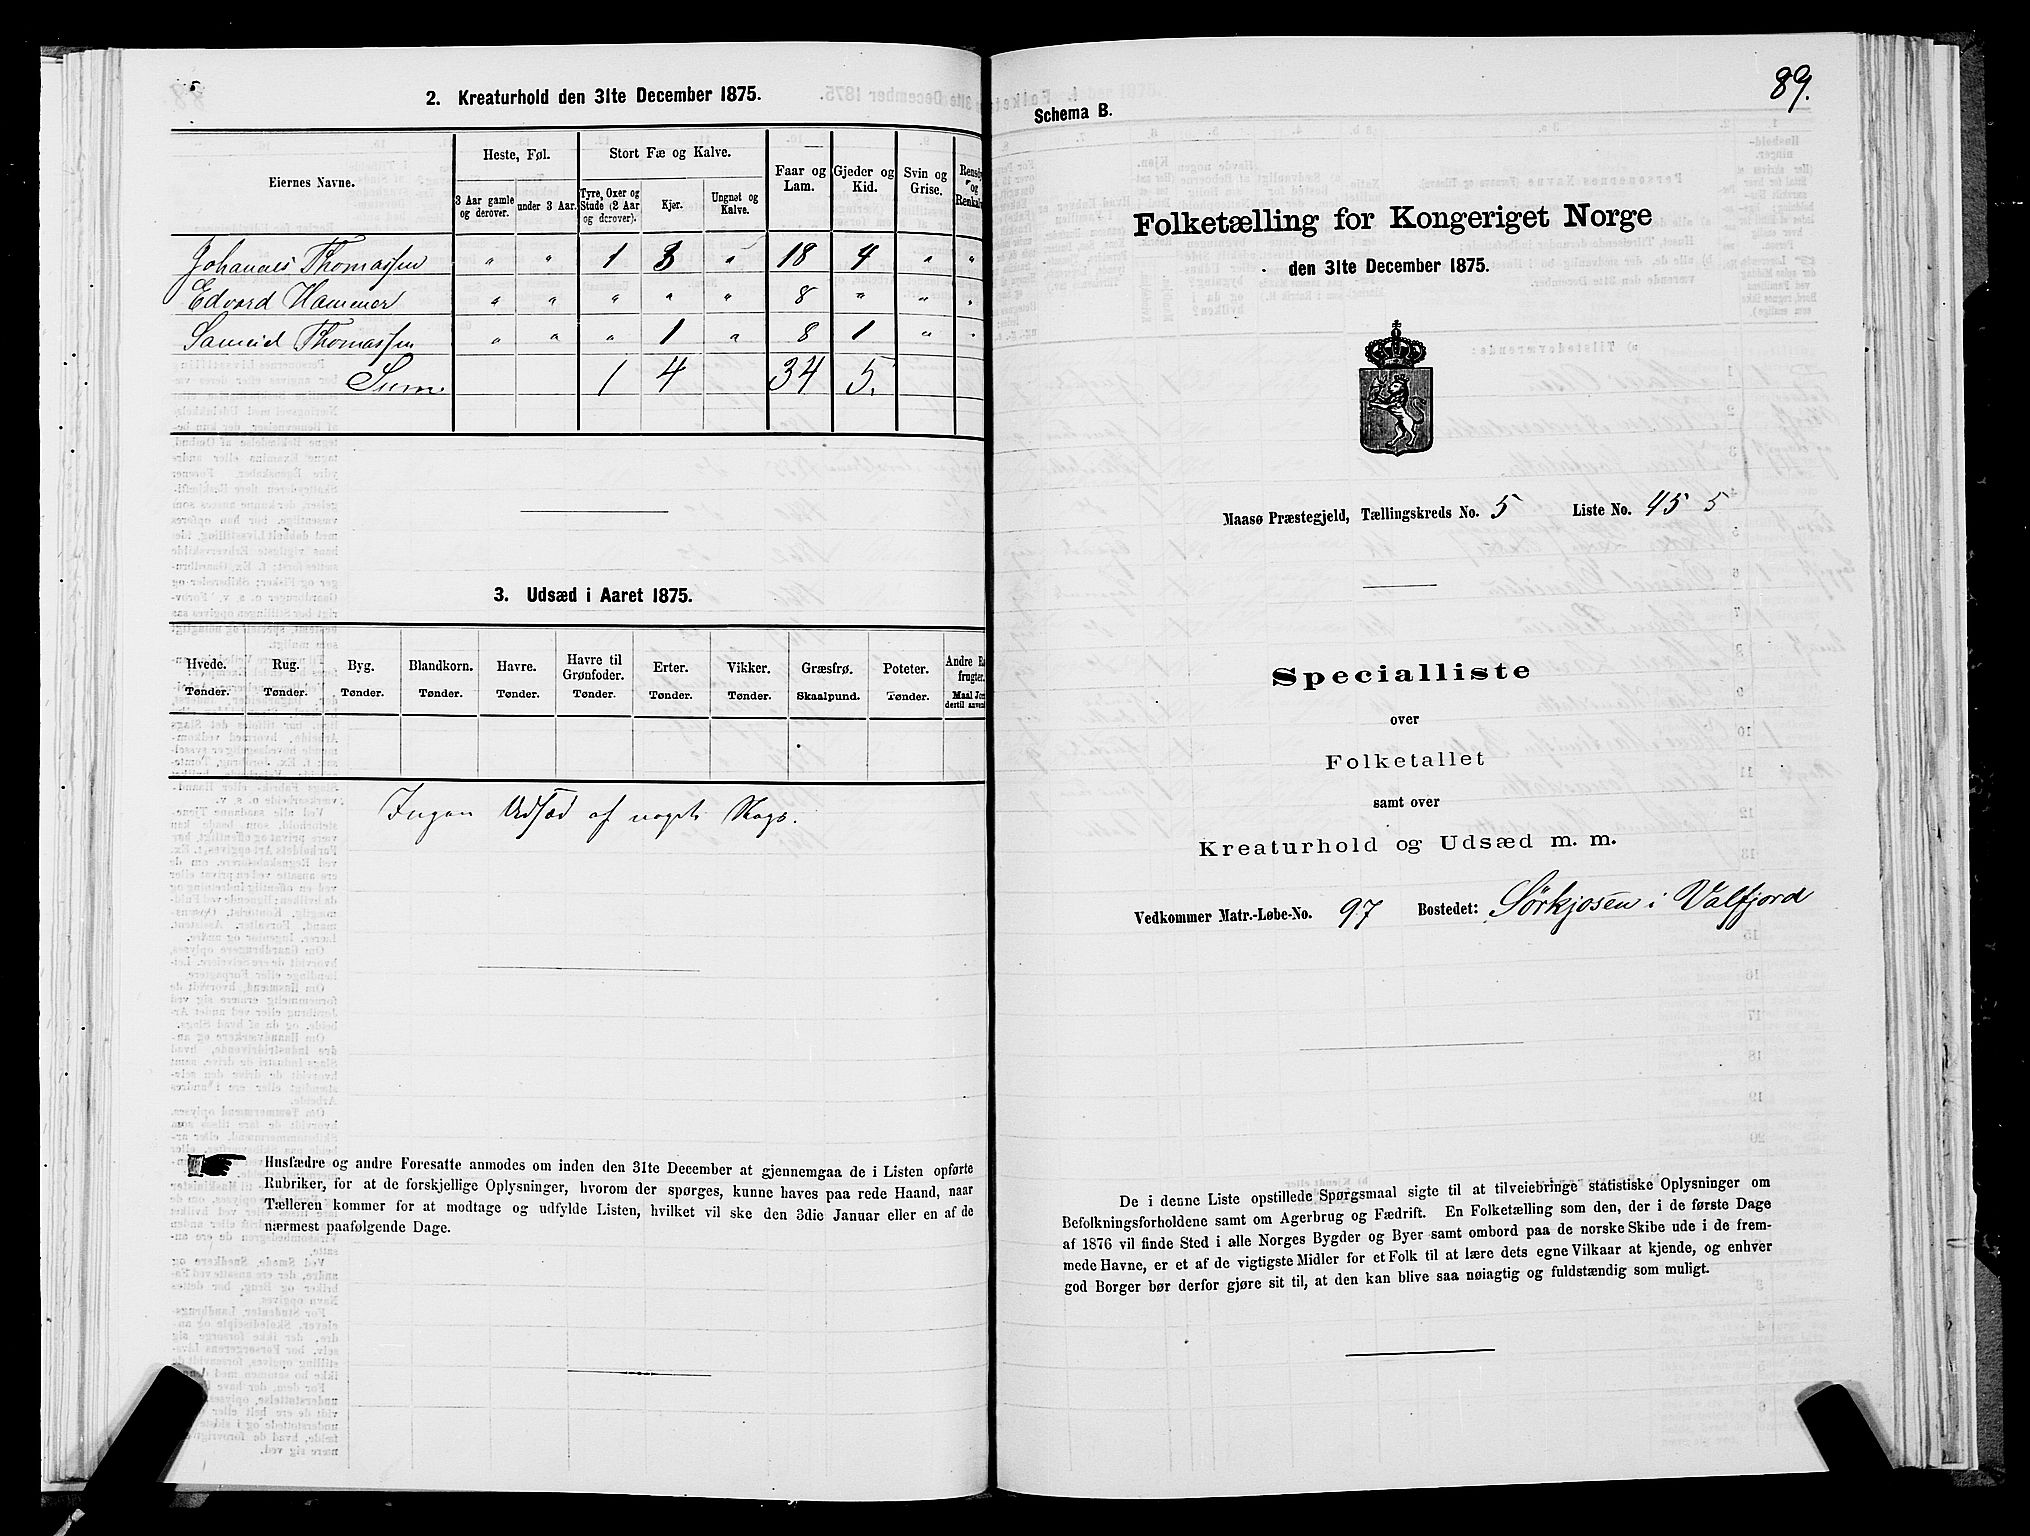 2. Kreaturhold den 31te December 1875.
Eiernes Navne.
Heste, Føl.
Stort Fæ og Kalve.
Faar og Lam.
Gjeder og Kid.
Svin og Grise.
3 Aar gamle og derover.
under 3 Aar.
Tyre, Oxer og Stude (2 Aar og derover).
Kjør.
Ungnøt og Kalve.
Johannes Thomassen " " 1 3 " 18 4 " "
Edvard Hammer " " " " " 8 " " "
Thomassen " " " 1 " 8 1 " "
Sum 1 4 34 5.
3. Udsæd i Aaret 1875.
Hvede. Rug. Byg. Blandkorn. Havre. Havre til Grønfoder. Erter. Vikker. Græsfrø. Poteter.
Tønder. Tønder. Tønder. Tønder. Tønder. Tønder. Tønder. Tønder. Skaalpund. Tønder.
Ingen Udsæd af noget Slags.
Husfædre og andre Foresatte anmodes om inden den 31te December at gjennemgaa de i Listen opførte
Rubriker, for at de forskjellige Oplysninger, hvorom der spørges, kunne haves paa rede Haand, naar
Tælleren kommer for at modtage og udfylde Listen, hvilket vil ske den 3die Januar eller en af de
nærmest paafølgende Dage.
89.
Schema B.
Folketælling for Kongeriget Norge
den 31te December 1875.
Maasø Præstegjeld, Tællingskreds No. 5 Liste No. 45 5
Specialliste
over
Folketallet
samt over
Kreaturhold og Udsæd m. m.
Vedkommer Matr.-Løbe-No. 97 Bostedet: Sørkjosen i Valfjord
De i denne Liste opstillede Spørgsmaal sigte til at tilveiebringe statistiske Oplysninger om
Befolkningsforholdene samt om Agerbrug og Fædrift. En Folketælling som den, der i de første Dage
af 1876 vil finde Sted i alle Norges Bygder og Byer samt ombord paa de norske Skibe ude i de frem-
mede Havne, er et af de vigtigste Midler for et Folk til at lære dets egne Vilkaar at kjende, og enhver
god Borger bør derfor gjøre sit til, at den kan blive saa nøiagtig og fuldstændig som muligt.